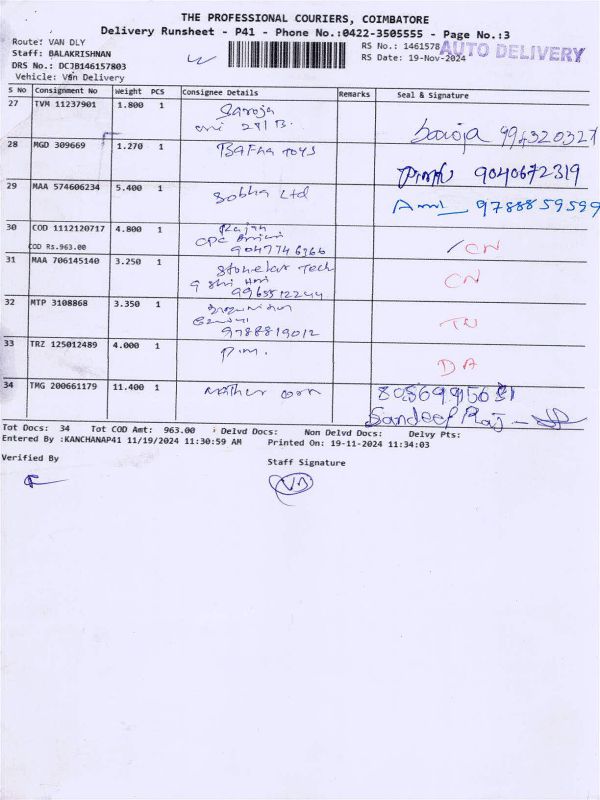 THE PROFESSIONAL COURIERS, COIMBATORE
Delivery Runsheet - P41 - Phone No.:0422-3505555 - Page No.:3
Route: VAN DLY
RS No.: 1461578
AUTO DELIVERY
Staff: BALAKRISHNAN
RS Date: 19-Nov-2024
DRS No.: DCJB146157803
Vehicle: Van Delivery
S No Consignment No Weight PCS Consignee Details Remarks Seal & Signature
27 TVM 11237901 1.800 1 Saroja
28/1 B.
Saroja
28 MGD 309669 1.270 1 Bafna Toys
9040672319
29 MAA 574606234 5.400 1 Sobha Ltd
9788859599
30 COD 1112120717 4.800 1 Rajan
COD Rs.963.00
9047746366
CN
31 MAA 706145140 3.250 1 Stonekar Tech
9965512244
CN
32 MTP 3108868 3.350 1
9788819012
TN
33 TRZ 125012489 4.000 1 P.M.
DA
34 TMG 200661179 11.400 1 Mother corn
8056995631
Sandeep Raj
Tot Docs: 34 Tot COD Amt: 963.00 Delvd Docs: Non Delvd Docs: Delvy Pts:
Entered By :KANCHANAP41 11/19/2024 11:30:59 AM Printed On: 19-11-2024 11:34:03
Verified By
Staff Signature